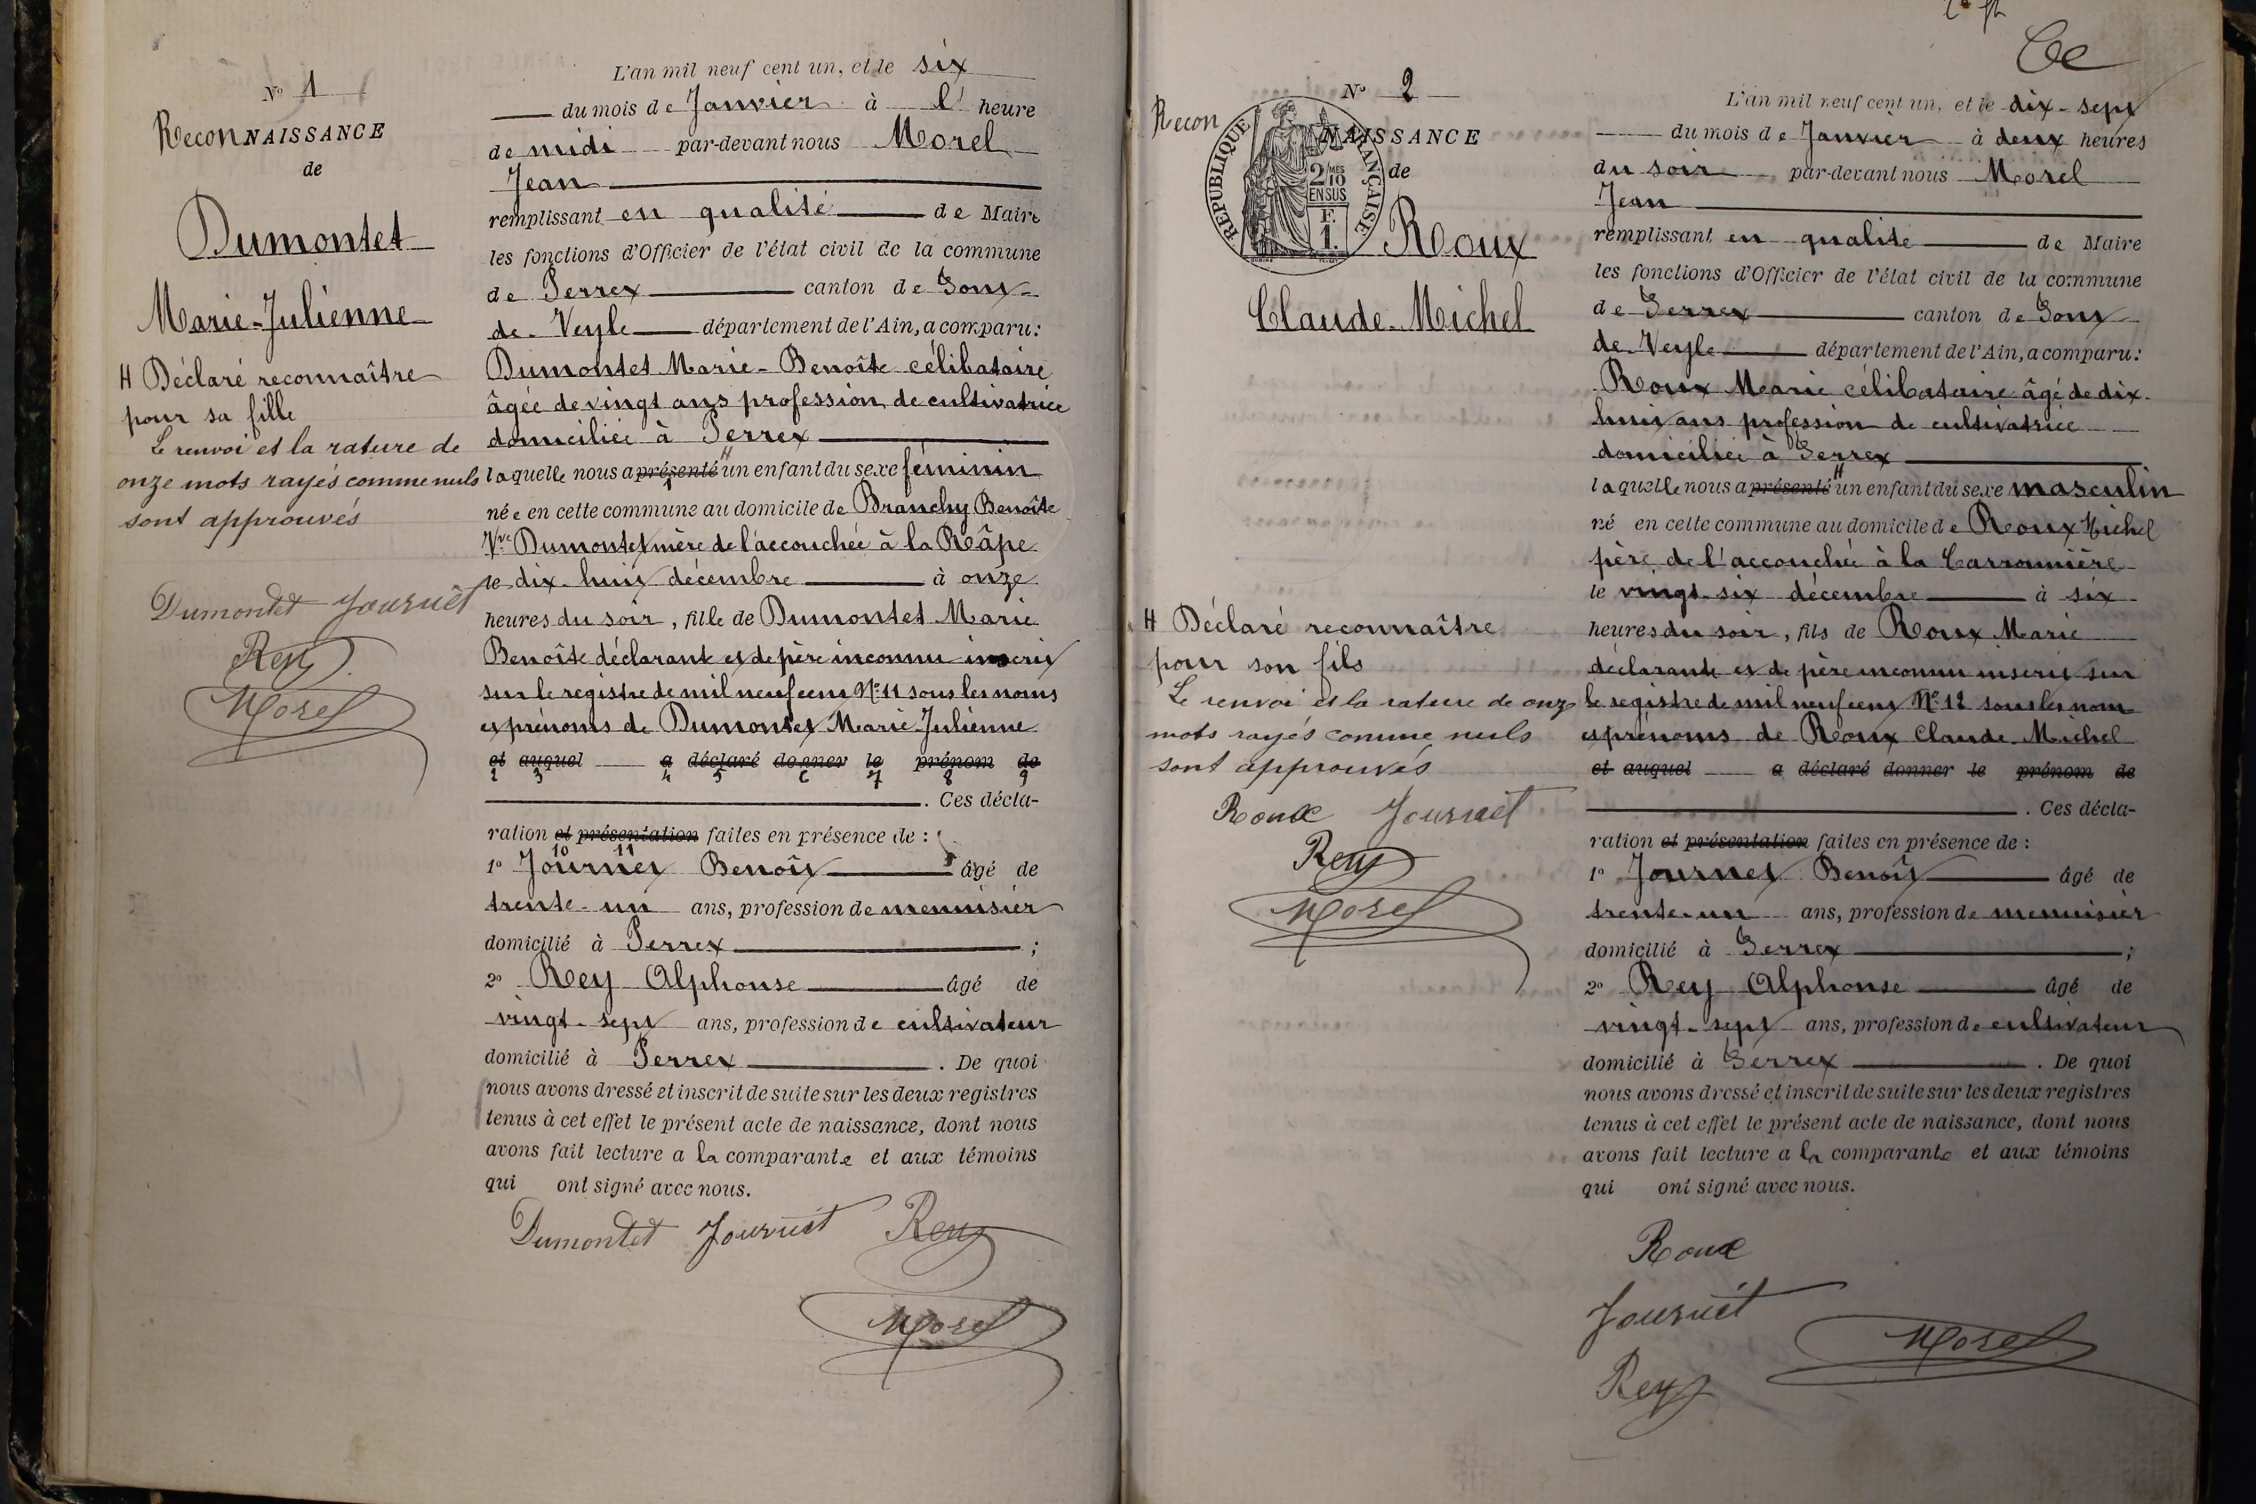 N° 1
ReconNAISSANCE
de
Dumontet
Marie-Julienne
H Déclaré reconnaître
pour sa fille
Le renvoi et la rature de
onze mots rayés comme nuls
sont approuvés
Dumontet Journet
Rey
Morel
L'an mil neuf cent un, et le six
du mois de Janvier à l' heure
de midi par-devant nous Morel
Jean
remplissant en qualité de Maire
les fonctions d'Officier de l'état civil de la commune
de Perrex canton de Pont-
de-Veyle département de l'Ain, a comparu:
Dumontet Marie-Benoîte célibataire
âgée de vingt ans profession de cultivatrice
domiciliée à Perrex
laquelle nous a présenté H un enfant du sexe féminin
née en cette commune au domicile de Branchy Benoîte
Vve Dumontet mère de l'accouchée à la Râpe
le dix-huit décembre à onze
heures du soir, fille de Dumontet Marie
Benoîte déclarant et de père inconnu inscrit
sur le registre de mil neuf cent N° 11 sous les noms
et prénoms de Dumontet Marie-Julienne
et auquel a déclaré donner le prénom de
1 3 4 5 6 7 8 9
. Ces décla-
ration et présentation faites en présence de :
10 11
1° Journet Benoît âgé de
trente-un ans, profession de menuisier
domicilié à Perrex ;
2° Rey Alphonse âgé de
vingt-sept ans, profession de cultivateur
domicilié à Perrex . De quoi
nous avons dressé et inscrit de suite sur les deux registres
tenus à cet effet le présent acte de naissance, dont nous
avons fait lecture a la comparante et aux témoins
qui ont signé avec nous.
Dumontet Journet Rey
Morel
N° 2
ReconNAISSANCE
de
RÉPUBLIQUE FRANÇAISE
2/10MES
EN SUS
F.
1.
Roux
Claude-Michel
H Déclaré reconnaître
pour son fils
Le renvoi et la rature de onze
mots rayés comme nuls
sont approuvés
Roux Journet
Rey
Morel
L'an mil neuf cent un, et le dix-sept
du mois de Janvier à deux heures
du soir par-devant nous Morel
Jean
remplissant en qualité de Maire
les fonctions d'Officier de l'état civil de la commune
de Perrex canton de Pont
de-Veyle département de l'Ain, a comparu:
Roux Marie célibataire âgé de dix-
huit ans profession de cultivatrice
domiciliée à Perrex
laquelle nous a présenté H un enfant du sexe masculin
né en cette commune au domicile de Roux Michel
père de l'accouchée à la Carronnière
le vingt-six décembre à six
heures du soir, fils de Roux Marie
déclarante et de père inconnu inscrit sur
le registre de mil neuf cent N° 12 sous les nom
et prénoms de Roux Claude-Michel
et auquel a déclaré donner le prénom de
. Ces décla-
ration et présentation faites en présence de :
1° Journet Benoît âgé de
trente-un ans, profession de menuisier
domicilié à Perrex ;
2° Rey Alphonse âgé de
vingt-sept ans, profession de cultivateur
domicilié à Perrex . De quoi
nous avons dressé et inscrit de suite sur les deux registres
tenus à cet effet le présent acte de naissance, dont nous
avons fait lecture a la comparante et aux témoins
qui ont signé avec nous.
Roux
Journet
Morel
Rey